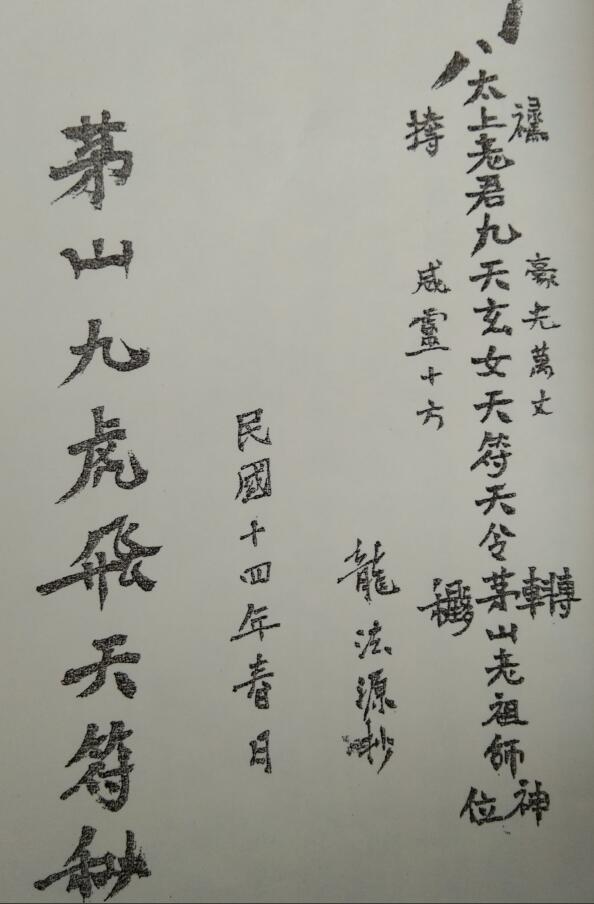 太上老君九天玄女天符天令茅山老祖師神位
豪光萬丈
咸靈十方
龍法源抄
民國十四年春日
茅山九虎飛天符秘